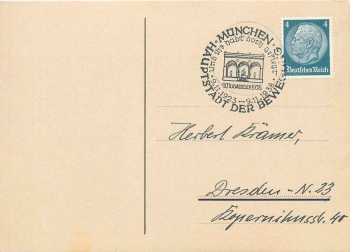 MÜNCHEN · HAUPTSTADT DER BEWEGUNG
und ihr habt doch gesiegt
9.11.1923 - 9.11.1938
4 4
Deutsches Reich
Herbert Krämer,
Dresden-N. 23
Kopernikusstr. 40